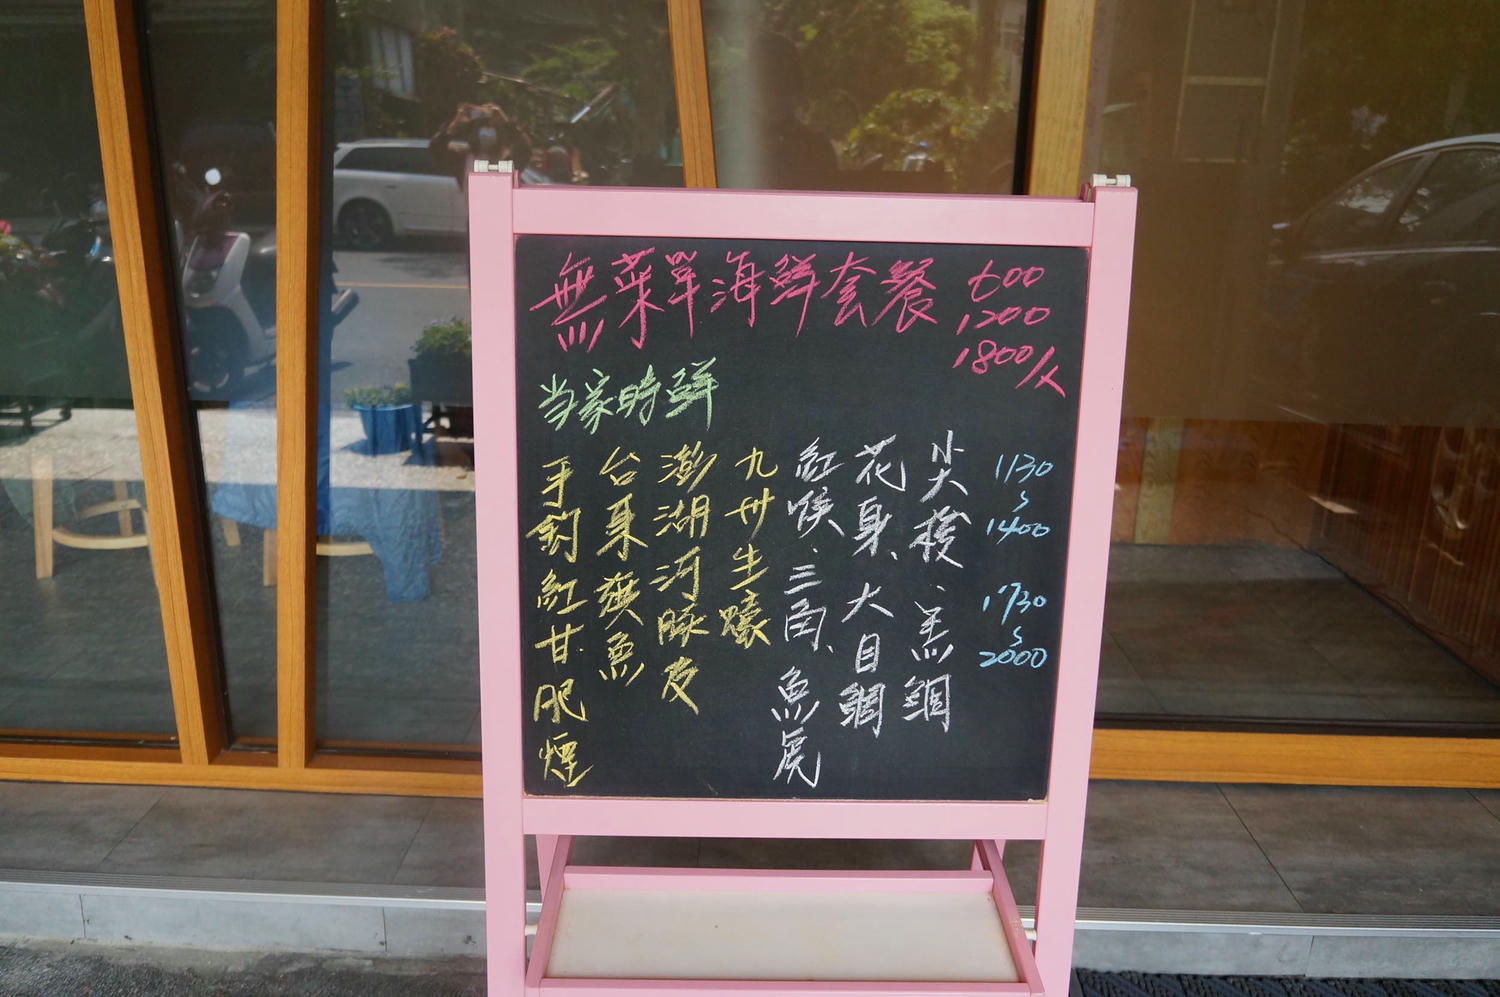 無菜單海鮮套餐 600
1200
1800/人
当家時鮮
1130
~
1400
1730
~
2000
尖梭、黑鯛
花身、大目鯛
紅喉、三角、魚虎
九州生蠔
澎湖河豚皮
台東旗魚
手釣紅甘肥煙